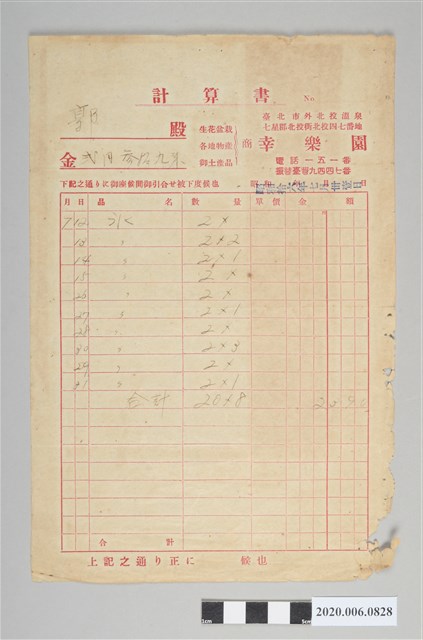 計算書 No.
殿
生花盆栽
各地物産
御土産品
商
臺北市外北投溫泉
七星郡北投街北投四七番地
幸樂園
電話一五一番
振替臺灣九四四七番
金 弐円
下記之通りに御座候間御引合せ被下度候也
昭和拾六年七月卅壹日
月 日 品名 數量 單價 金額
7 12 氷 2 ×
13 〃 2 × 2
14 〃 2 × 1
15 〃 2 ×
26 〃 2 ×
27 〃 2 × 1
28 〃 2 ×
30 〃 2 × 3
29 〃 2 ×
31 〃 2 × 1
合計 20 × 8
合計
上記之通り正に 候也
1cm
5cm
2020.006.0828